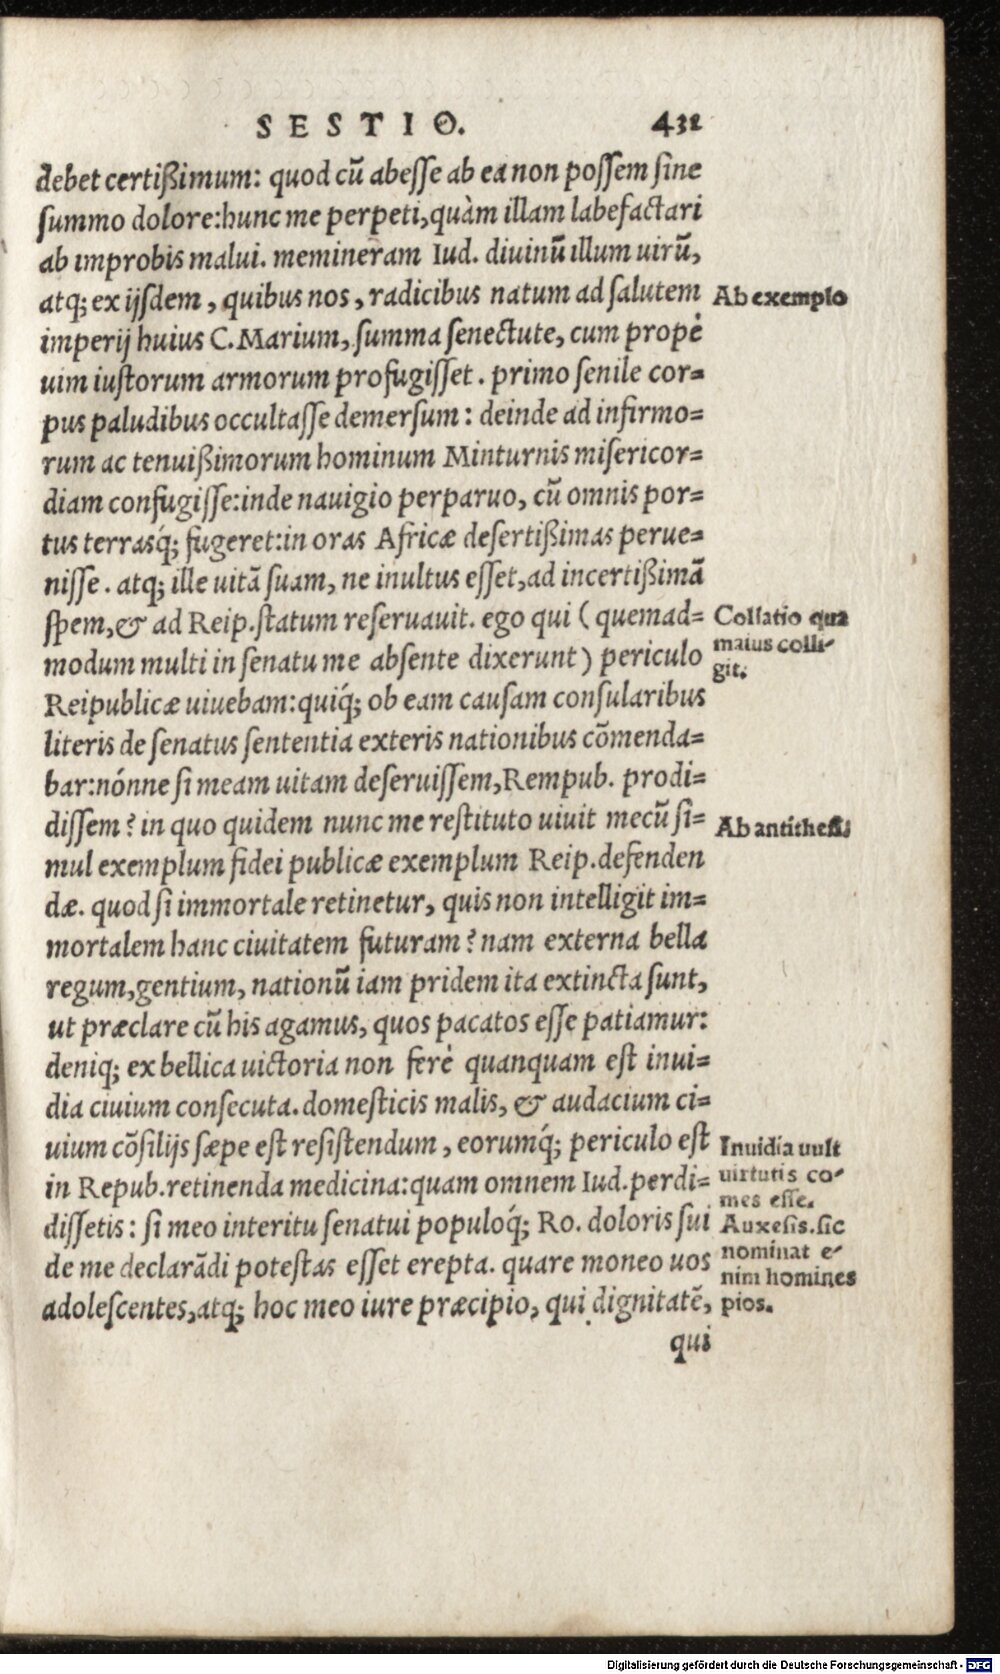 SESTIO. 432
debet certißimum: quod cū abesse ab ea non possem sine
summo dolore:hunc me perpeti,quàm illam labefactari
ab improbis malui. memineram Iud. diuinū illum uirū,
atq; ex ijsdem, quibus nos, radicibus natum ad salutem
Ab exemplo
imperij huius C. Marium, summa senectute, cum propè
uim iustorum armorum profugisset. primo senile cor=
pus paludibus occultasse demersum: deinde ad infirmo=
rum ac tenuißimorum hominum Minturnis misericor=
diam confugisse:inde nauigio perparuo, cū omnis por=
tus terrasq́; fugeret:in oras Africæ desertißimas perue=
nisse. atq; ille uitā suam, ne inultus esset,ad incertißimā
spem,& ad Reip.statum reseruauit. ego qui (quemad=
Collatio qua
maius colli-
git.
modum multi in senatu me absente dixerunt) periculo
Reipublicæ uiuebam:quiq́; ob eam causam consularibus
literis de senatus sententia exteris nationibus cōmenda=
bar:nónne si meam uitam deseruissem,Rempub. prodi=
dissem? in quo quidem nunc me restituto uiuit mecū si=
Ab antithesi
mul exemplum fidei publicæ exemplum Reip.defenden
dæ. quod si immortale retinetur, quis non intelligit im=
mortalem hanc ciuitatem futuram? nam externa bella
regum,gentium, nationū iam pridem ita extincta sunt,
ut præclare cū his agamus, quos pacatos esse patiamur:
deniq; ex bellica uictoria non ferè quanquam est inui=
dia ciuium consecuta. domesticis malis, & audacium ci=
uium cōsilijs sæpe est resistendum, eorumq́; periculo est
Inuidia uult
uirtutis co-
mes esse.
in Repub.retinenda medicina:quam omnem Iud.perdi=
dissetis: si meo interitu senatui populoq́; Ro. doloris sui
Auxesis.sic
nominat e-
nim homines
pios.
de me declarādi potestas esset erepta. quare moneo uos
adolescentes,atq; hoc meo iure præcipio, qui dignitatē,
qui
Digitalisierung gefördert durch die Deutsche Forschungsgemeinschaft - DFG